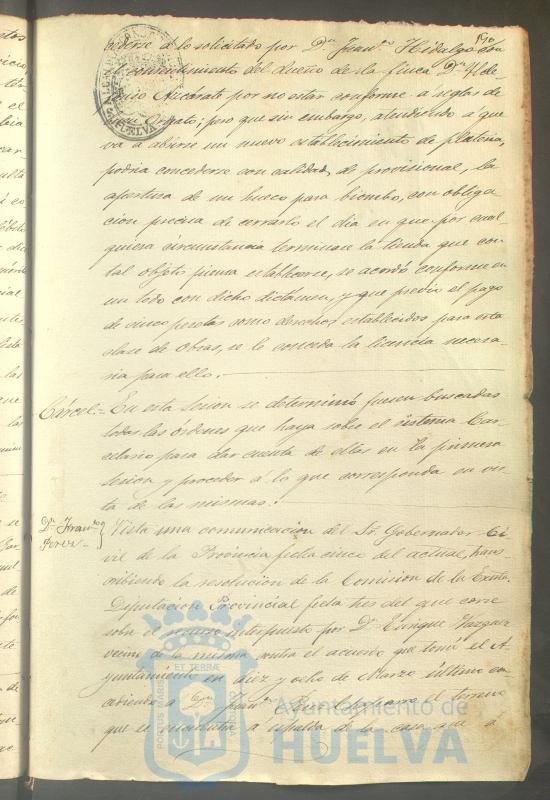 190
cederse á lo solicitado por Dn. Franco. Hidalgo con
consentimiento del dueño de dha finca Dn.
Azcárate por no estar conforme á reglas de
Ornato; pero que sin embargo, atendiendo á que
va á abrirse un nuevo establecimiento de platería,
podria concederse con calidad de provisional, la
apertura de un hueco para biombo, con obliga
cion precisa de cerrarlo el dia en que por cual
quiera circunstancia terminase la tienda que con
tal objeto piensa establecerse, se acordó conforme en
un todo con dicho dictámen, y que previo el pago
de cinco pesetas como derechos establecidos para esta
clase de Obras, se le conceda la licencia necesa
ria para ello.
Cárcel = En esta sesion se determinó fuesen buscadas
todas las órdenes que haya sobre el sistema Car
celario para dar cuenta de ellas en la primera
sesion y proceder á lo que corresponda en vis
ta de las mismas.
Dn. Franco. Perez Vista una comunicacion del Sr. Gobernador Ci
vil de la Provincia fecha cinco del actual, trans
cribiendo la resolucion de la Comision de la Exma.
Diputacion Provincial fecha tres del que corre
sobre el recurso interpuesto por D. Enrique
vecino de la misma contra el acuerdo que tomó el A
yuntamiento en diez y ocho de Marzo último con
cediendo á Dn. Franco. el terreno
que se encuentra á espalda de la casa que á
PORTUS MARIS ET TERRAE CUSTODIA
Ayuntamiento de
HUELVA